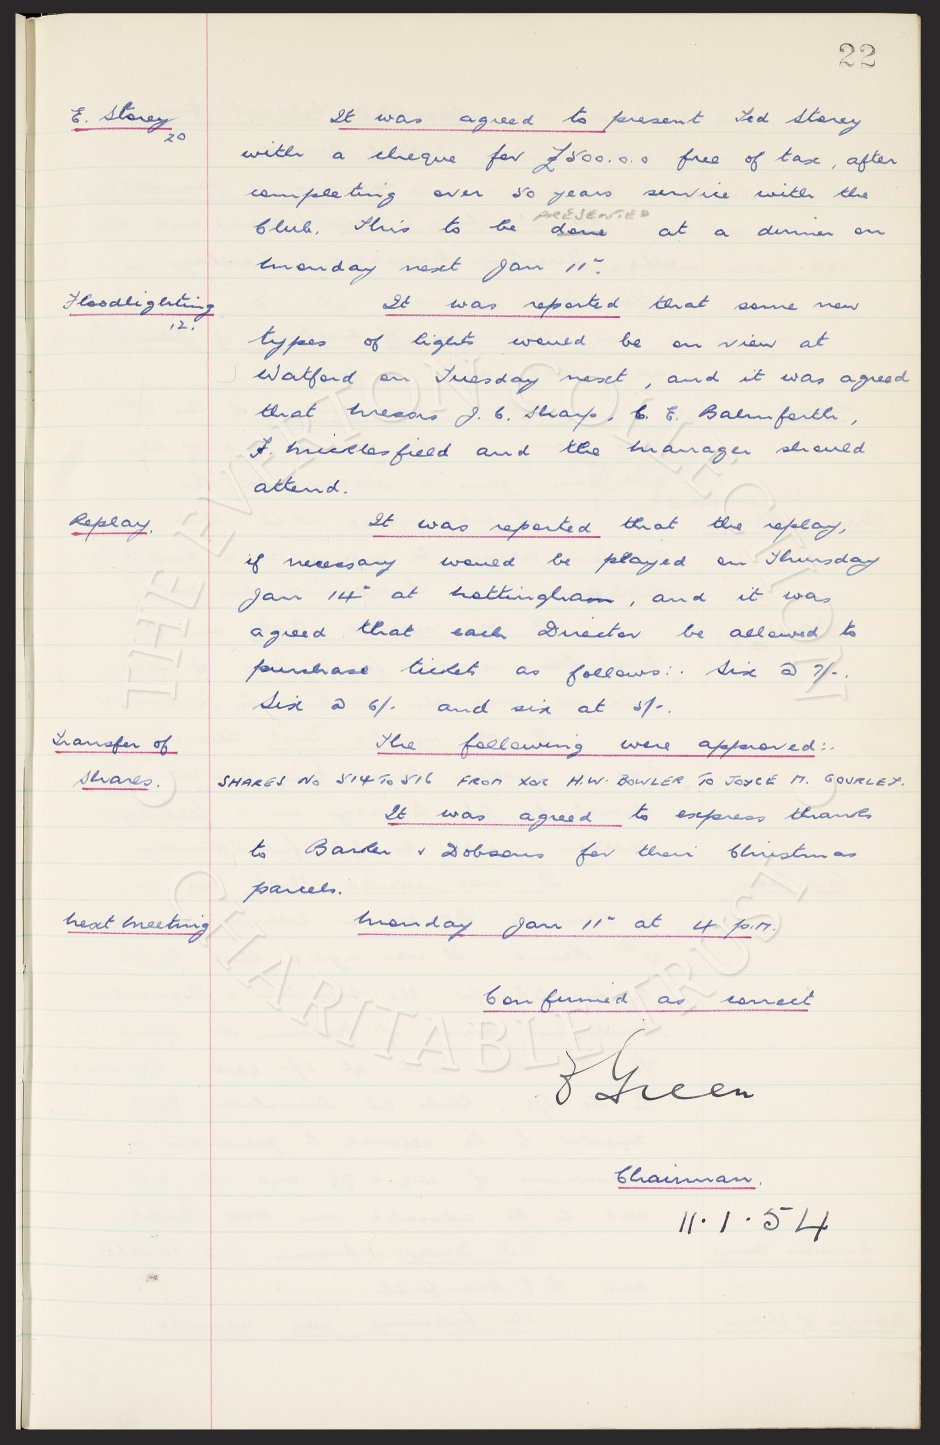 22
E. Storey It was agreed to present Ted Storey
20
with a cheque for £500.0.0 free of tax, after
completing over 50 years service with the
PRESENTED
Club. This to be done at a dinner on
Monday next Jan 11".
Floodlighting It was reported that some new
12.
types of lights would be on view at
Watford on Tuesday next, and it was agreed
that Messrs J. C. Sharp, C. E. Balmforth,
F. Micklesfield and the Manager should
attend.
Replay. It was reported that the replay,
if necessary would be played on Thursday
Jan 14" at Nottingham, and it was
agreed that each Director be allowed to
purchase tickets as follows:- Six @ 7/-.
Six @ 6/- and six at 5/-.
Transfer of The following were approved:-
Shares. SHARES NO 514 TO 516 FROM XOR H.W. BOWLER TO JOYCE M. GOURLEY.
It was agreed to express thanks
to Barker & Dobsons for their Christmas
parcels.
Next Meeting Monday Jan 11" at 4 p.m.
Confirmed as correct
Green
Chairman.
11.1.54
© THE EVERTON COLLECTION
CHARITABLE TRUST